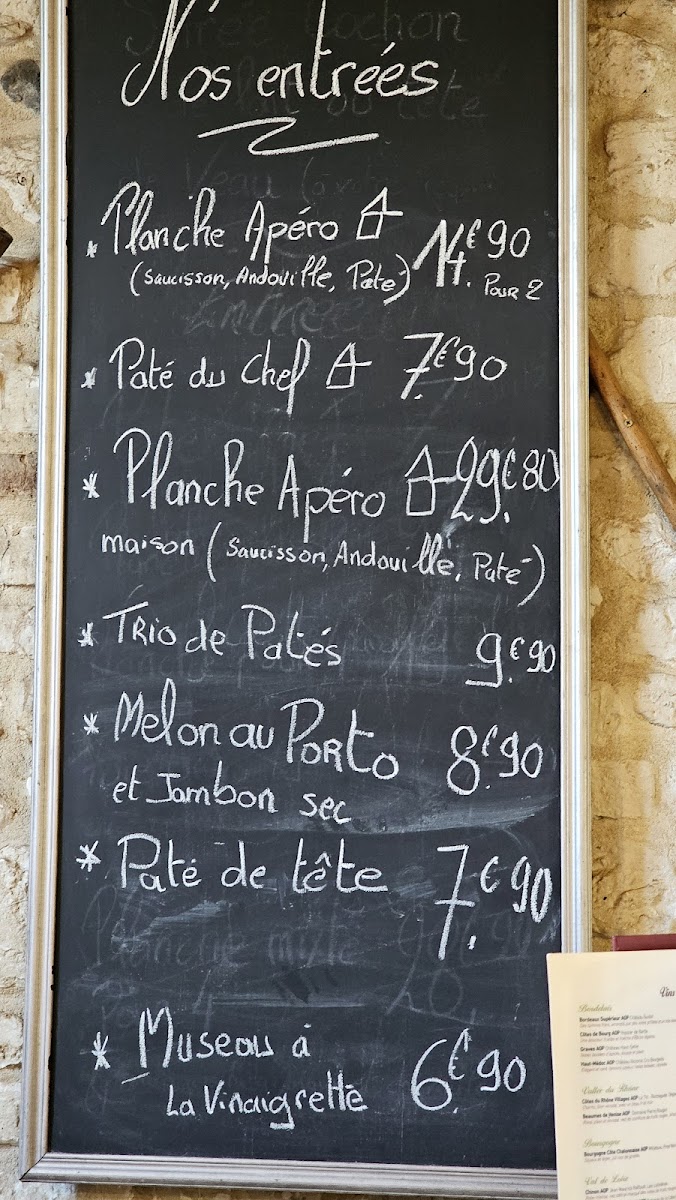 Nos entrées
* Planche Apéro 14.€90
(Saucisson, Andouille, Paté) Pour 2
* Paté du chef 7.€90
* Planche Apéro 29.€80
maison (Saucisson, Andouille, Paté)
* Trio de Patés 9.€90
* Melon au Porto 8.€90
et Jambon sec
* Paté de tête 7.€90
* Museau à 6.€90
La Vinaigrette
Vins
Bordelais
Bordeaux Supérieur AOP
Côtes de Bourg AOP
Graves AOP
Haut-Médoc AOP
Vallée du Rhône
Côtes du Rhône Villages AOP
Beaumes de Venise AOP
Bourgogne
Bourgogne Côte Chalonnaise AOP
Val de Loire
Chinon AOP